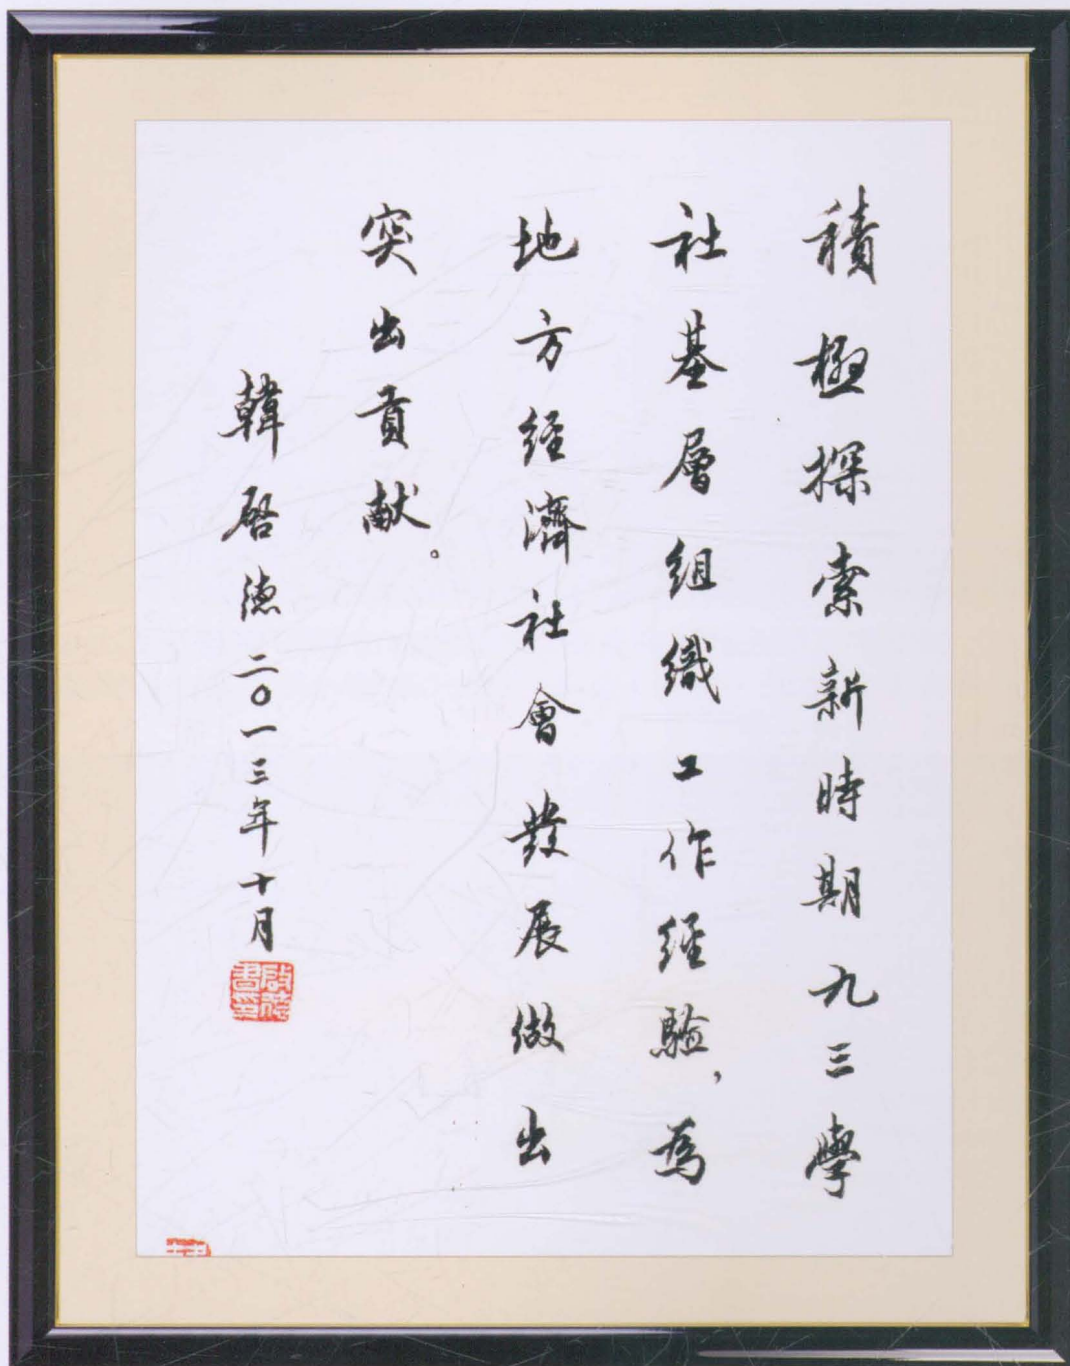 積極探索新時期九三學
社基層組織工作經驗，為
地方经濟社會發展做出
突出貢献。
韓启德二〇一三年十月
啟德書印